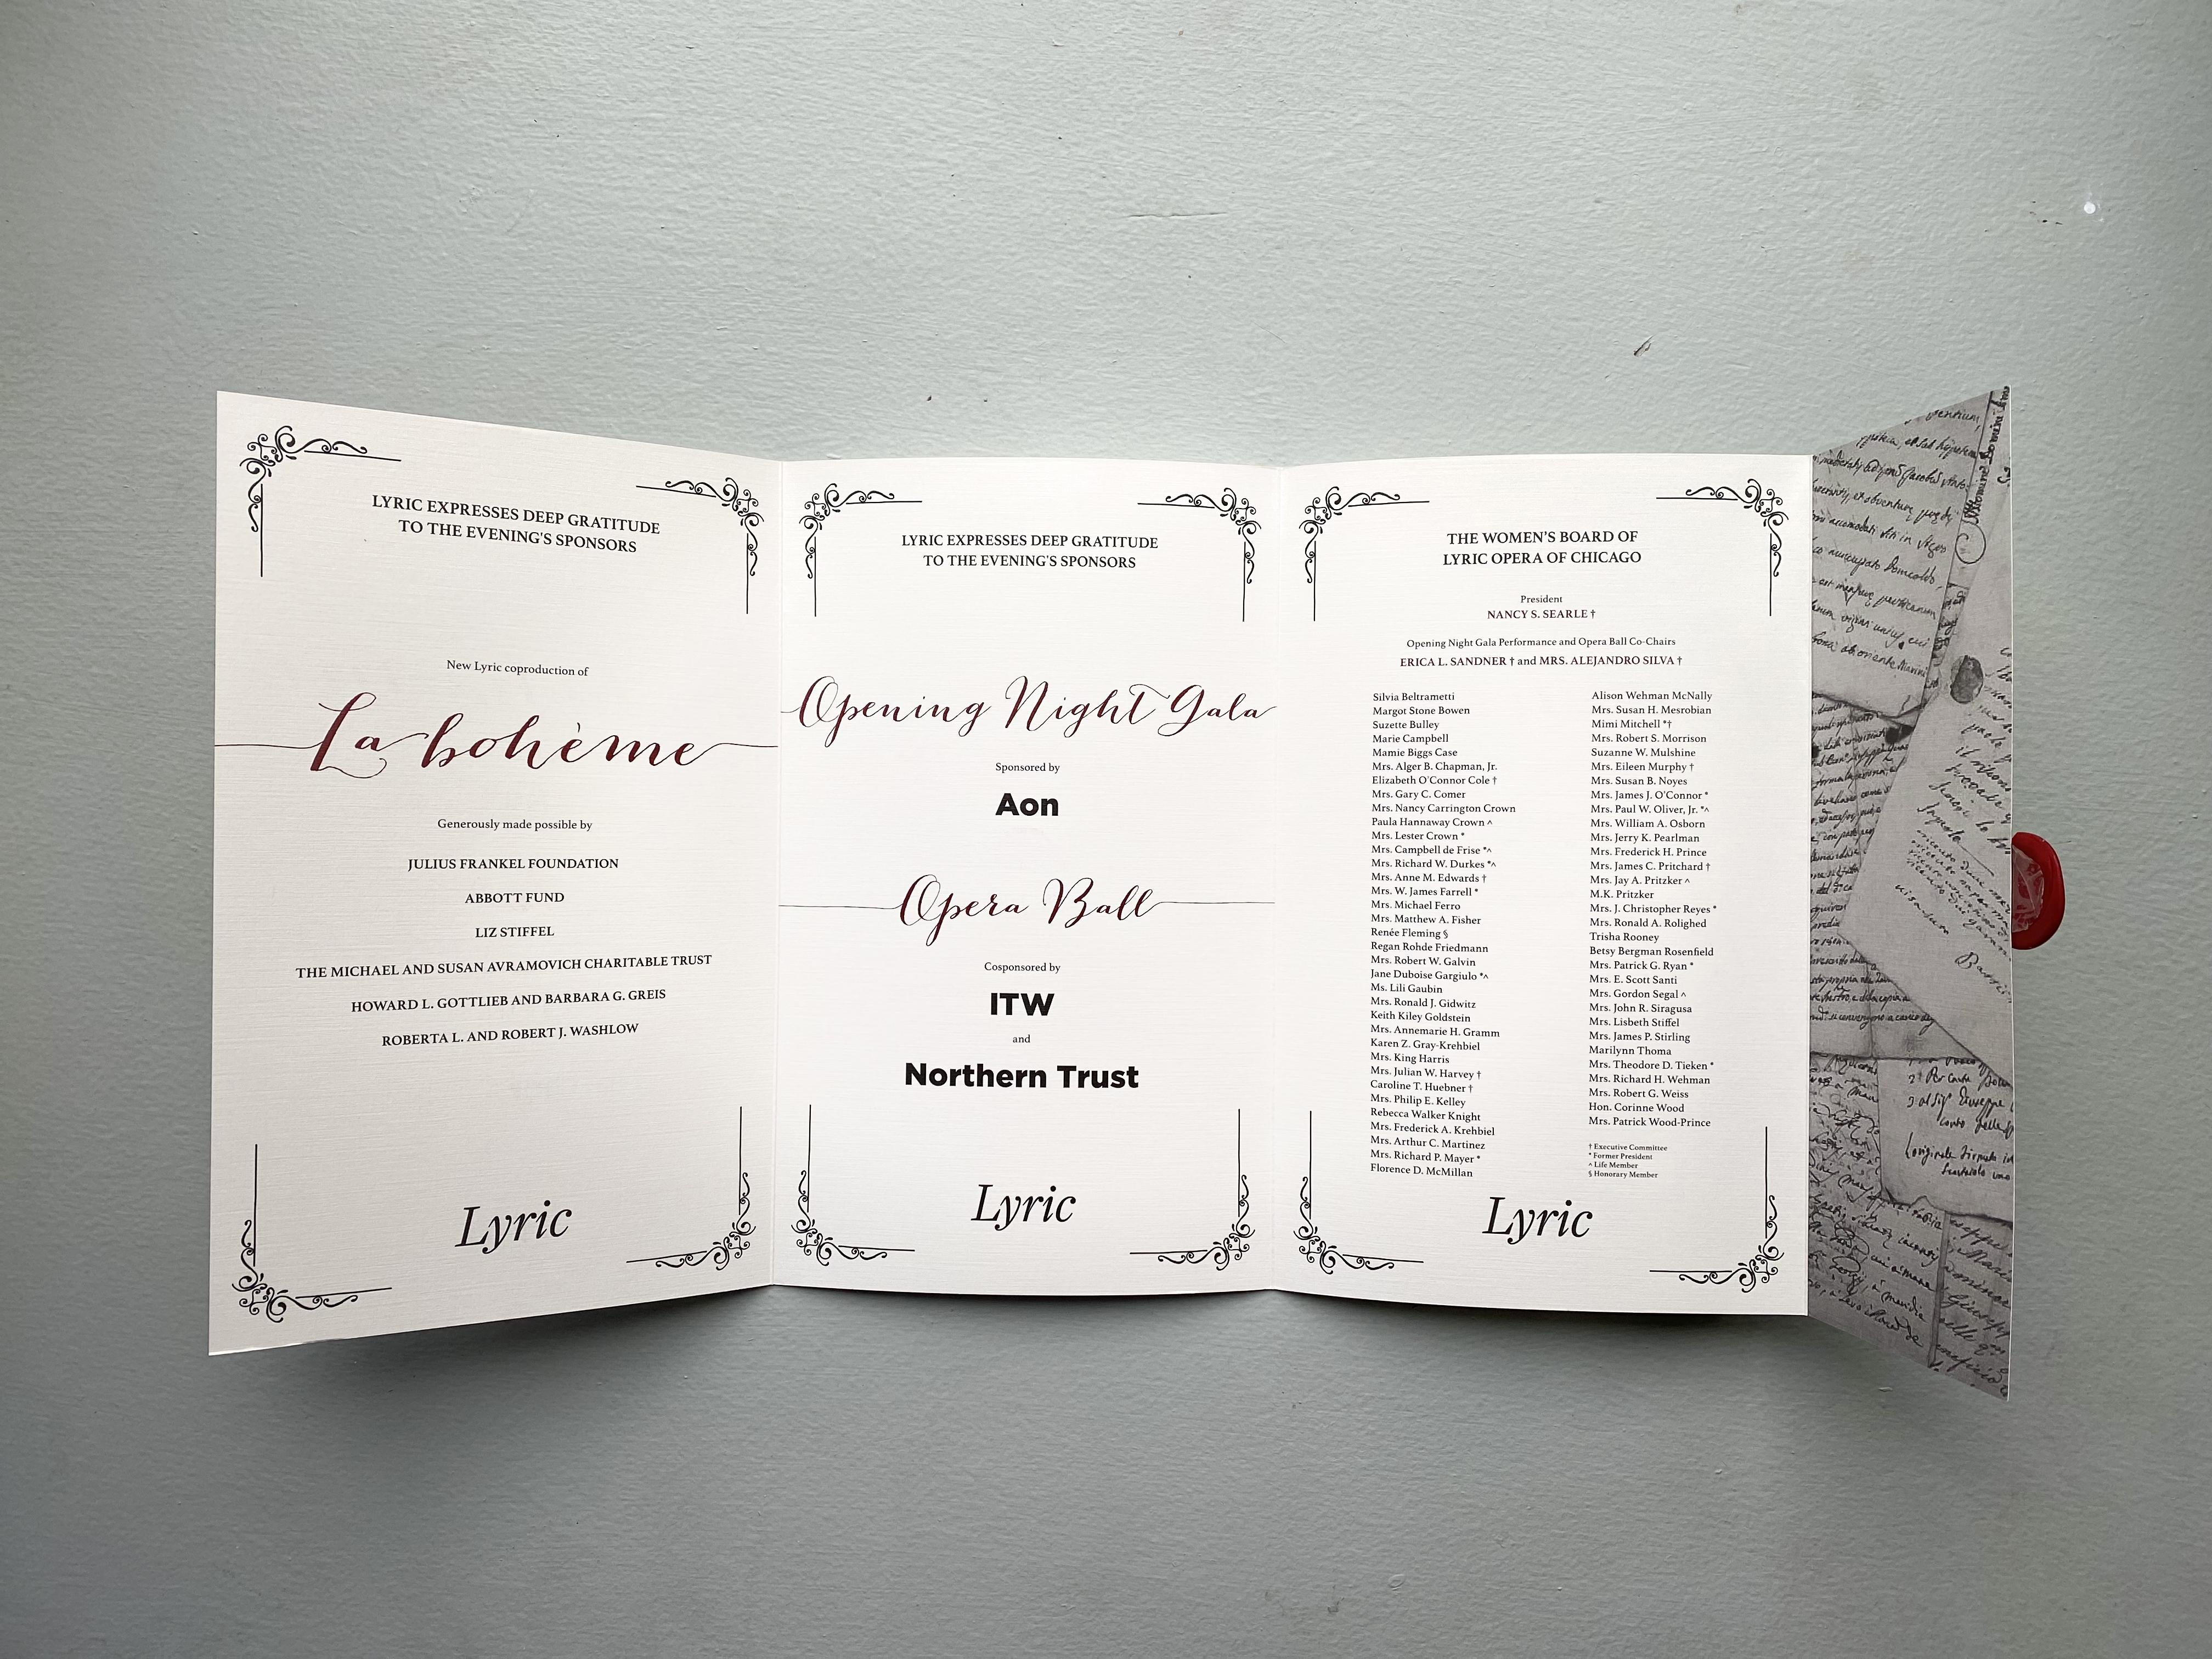 LYRIC EXPRESSES DEEP GRATITUDE
TO THE EVENING'S SPONSORS
New Lyric coproduction of
La bohème
Generously made possible by
JULIUS FRANKEL FOUNDATION
ABBOTT FUND
LIZ STIFFEL
THE MICHAEL AND SUSAN AVRAMOVICH CHARITABLE TRUST
HOWARD L. GOTTLIEB AND BARBARA G. GREIS
ROBERTA L. AND ROBERT J. WASHLOW
Lyric
LYRIC EXPRESSES DEEP GRATITUDE
TO THE EVENING'S SPONSORS
Opening Night Gala
Sponsored by
Aon
Opera Ball
Cosponsored by
ITW
and
Northern Trust
Lyric
THE WOMEN'S BOARD OF
LYRIC OPERA OF CHICAGO
President
NANCY S. SEARLE †
Opening Night Gala Performance and Opera Ball Co-Chairs
ERICA L. SANDNER † and MRS. ALEJANDRO SILVA †
Silvia Beltrametti
Margot Stone Bowen
Suzette Bulley
Marie Campbell
Mamie Biggs Case
Mrs. Alger B. Chapman, Jr.
Elizabeth O'Connor Cole †
Mrs. Gary C. Comer
Mrs. Nancy Carrington Crown
Paula Hannaway Crown ^
Mrs. Lester Crown *
Mrs. Campbell de Frise *^
Mrs. Richard W. Durkes *^
Mrs. Anne M. Edwards †
Mrs. W. James Farrell *
Mrs. Michael Ferro
Mrs. Matthew A. Fisher
Renée Fleming §
Regan Rohde Friedmann
Mrs. Robert W. Galvin
Jane Duboise Gargiulo *^
Ms. Lili Gaubin
Mrs. Ronald J. Gidwitz
Keith Kiley Goldstein
Mrs. Annemarie H. Gramm
Karen Z. Gray-Krehbiel
Mrs. King Harris
Mrs. Julian W. Harvey †
Caroline T. Huebner †
Mrs. Philip E. Kelley
Rebecca Walker Knight
Mrs. Frederick A. Krehbiel
Mrs. Arthur C. Martinez
Mrs. Richard P. Mayer *
Florence D. McMillan
Alison Wehman McNally
Mrs. Susan H. Mesrobian
Mimi Mitchell *†
Mrs. Robert S. Morrison
Suzanne W. Mulshine
Mrs. Eileen Murphy †
Mrs. Susan B. Noyes
Mrs. James J. O'Connor *
Mrs. Paul W. Oliver, Jr. *^
Mrs. William A. Osborn
Mrs. Jerry K. Pearlman
Mrs. Frederick H. Prince
Mrs. James C. Pritchard †
Mrs. Jay A. Pritzker ^
M.K. Pritzker
Mrs. J. Christopher Reyes *
Mrs. Ronald A. Rolighed
Trisha Rooney
Betsy Bergman Rosenfield
Mrs. Patrick G. Ryan *
Mrs. E. Scott Santi
Mrs. Gordon Segal ^
Mrs. John R. Siragusa
Mrs. Lisbeth Stiffel
Mrs. James P. Stirling
Marilynn Thoma
Mrs. Theodore D. Tieken *
Mrs. Richard H. Wehman
Mrs. Robert G. Weiss
Hon. Corinne Wood
Mrs. Patrick Wood-Prince
† Executive Committee
* Former President
^ Life Member
§ Honorary Member
Lyric